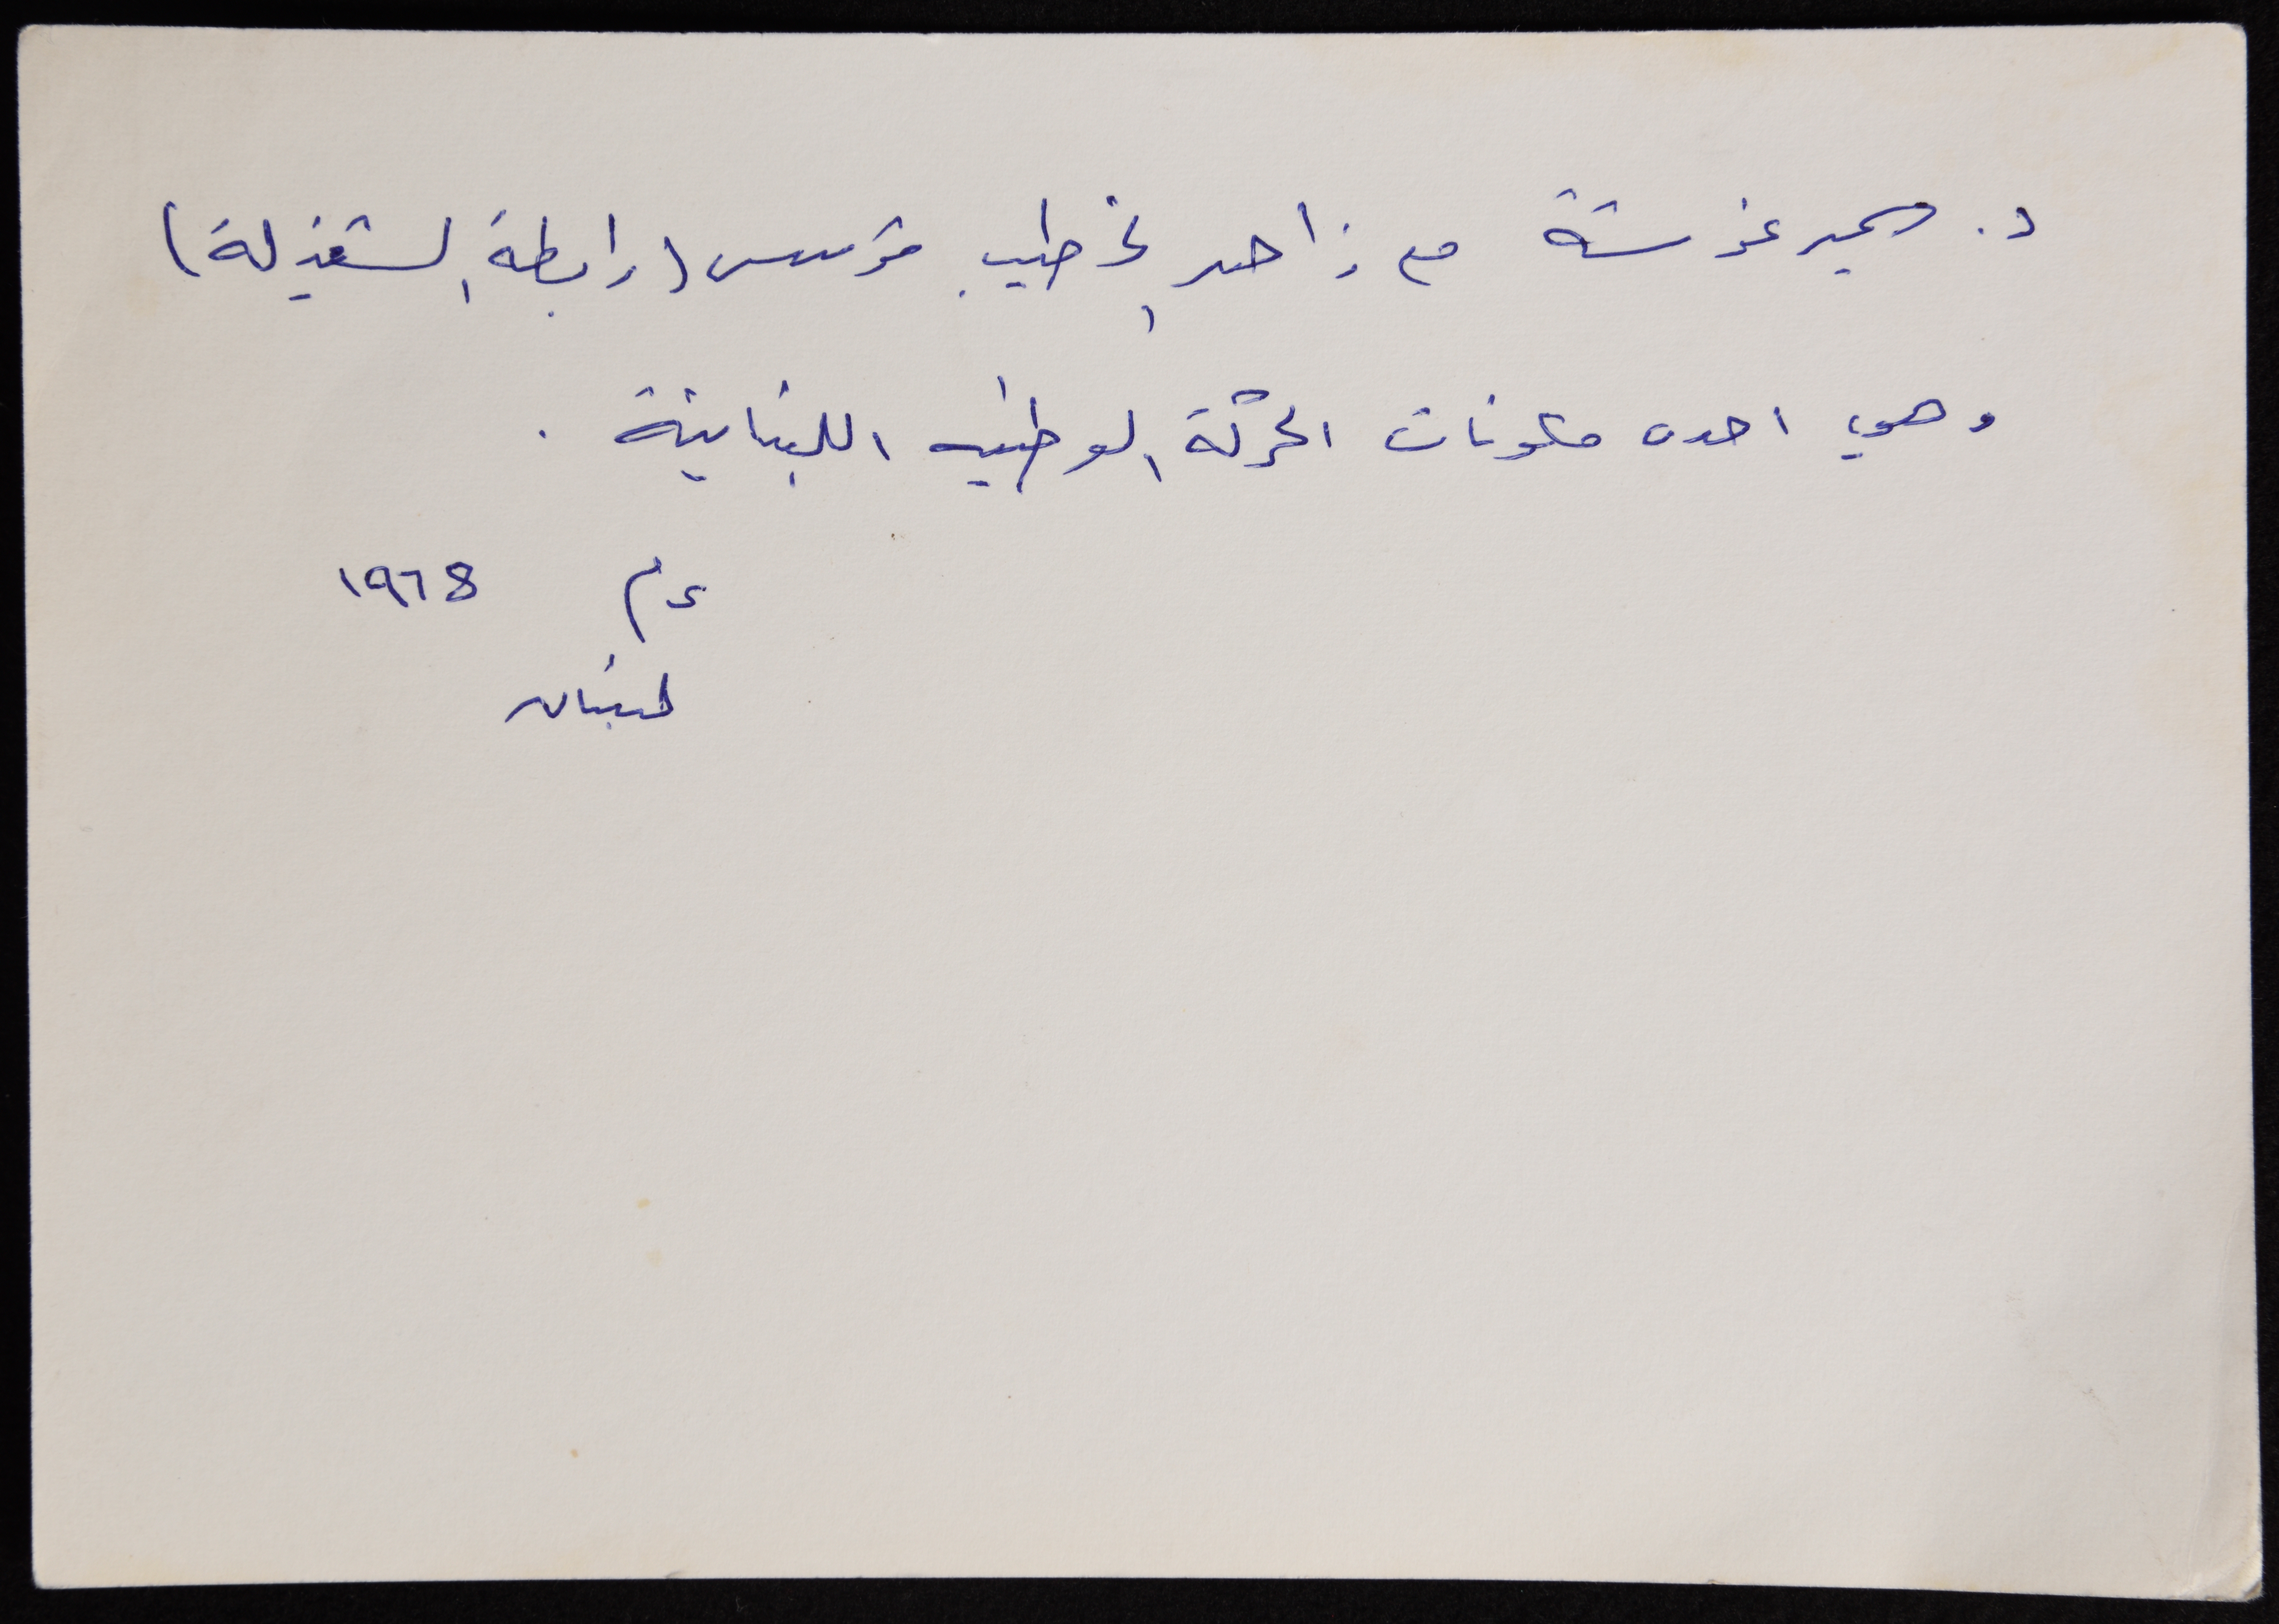 د. سمير غوشة مع زاهر الخطيب مؤسس (رابطة الشغيلة)
وهي احدى مكونات الحركة الوطنيه اللبنانية .
عام ١٩٦8
لبنان